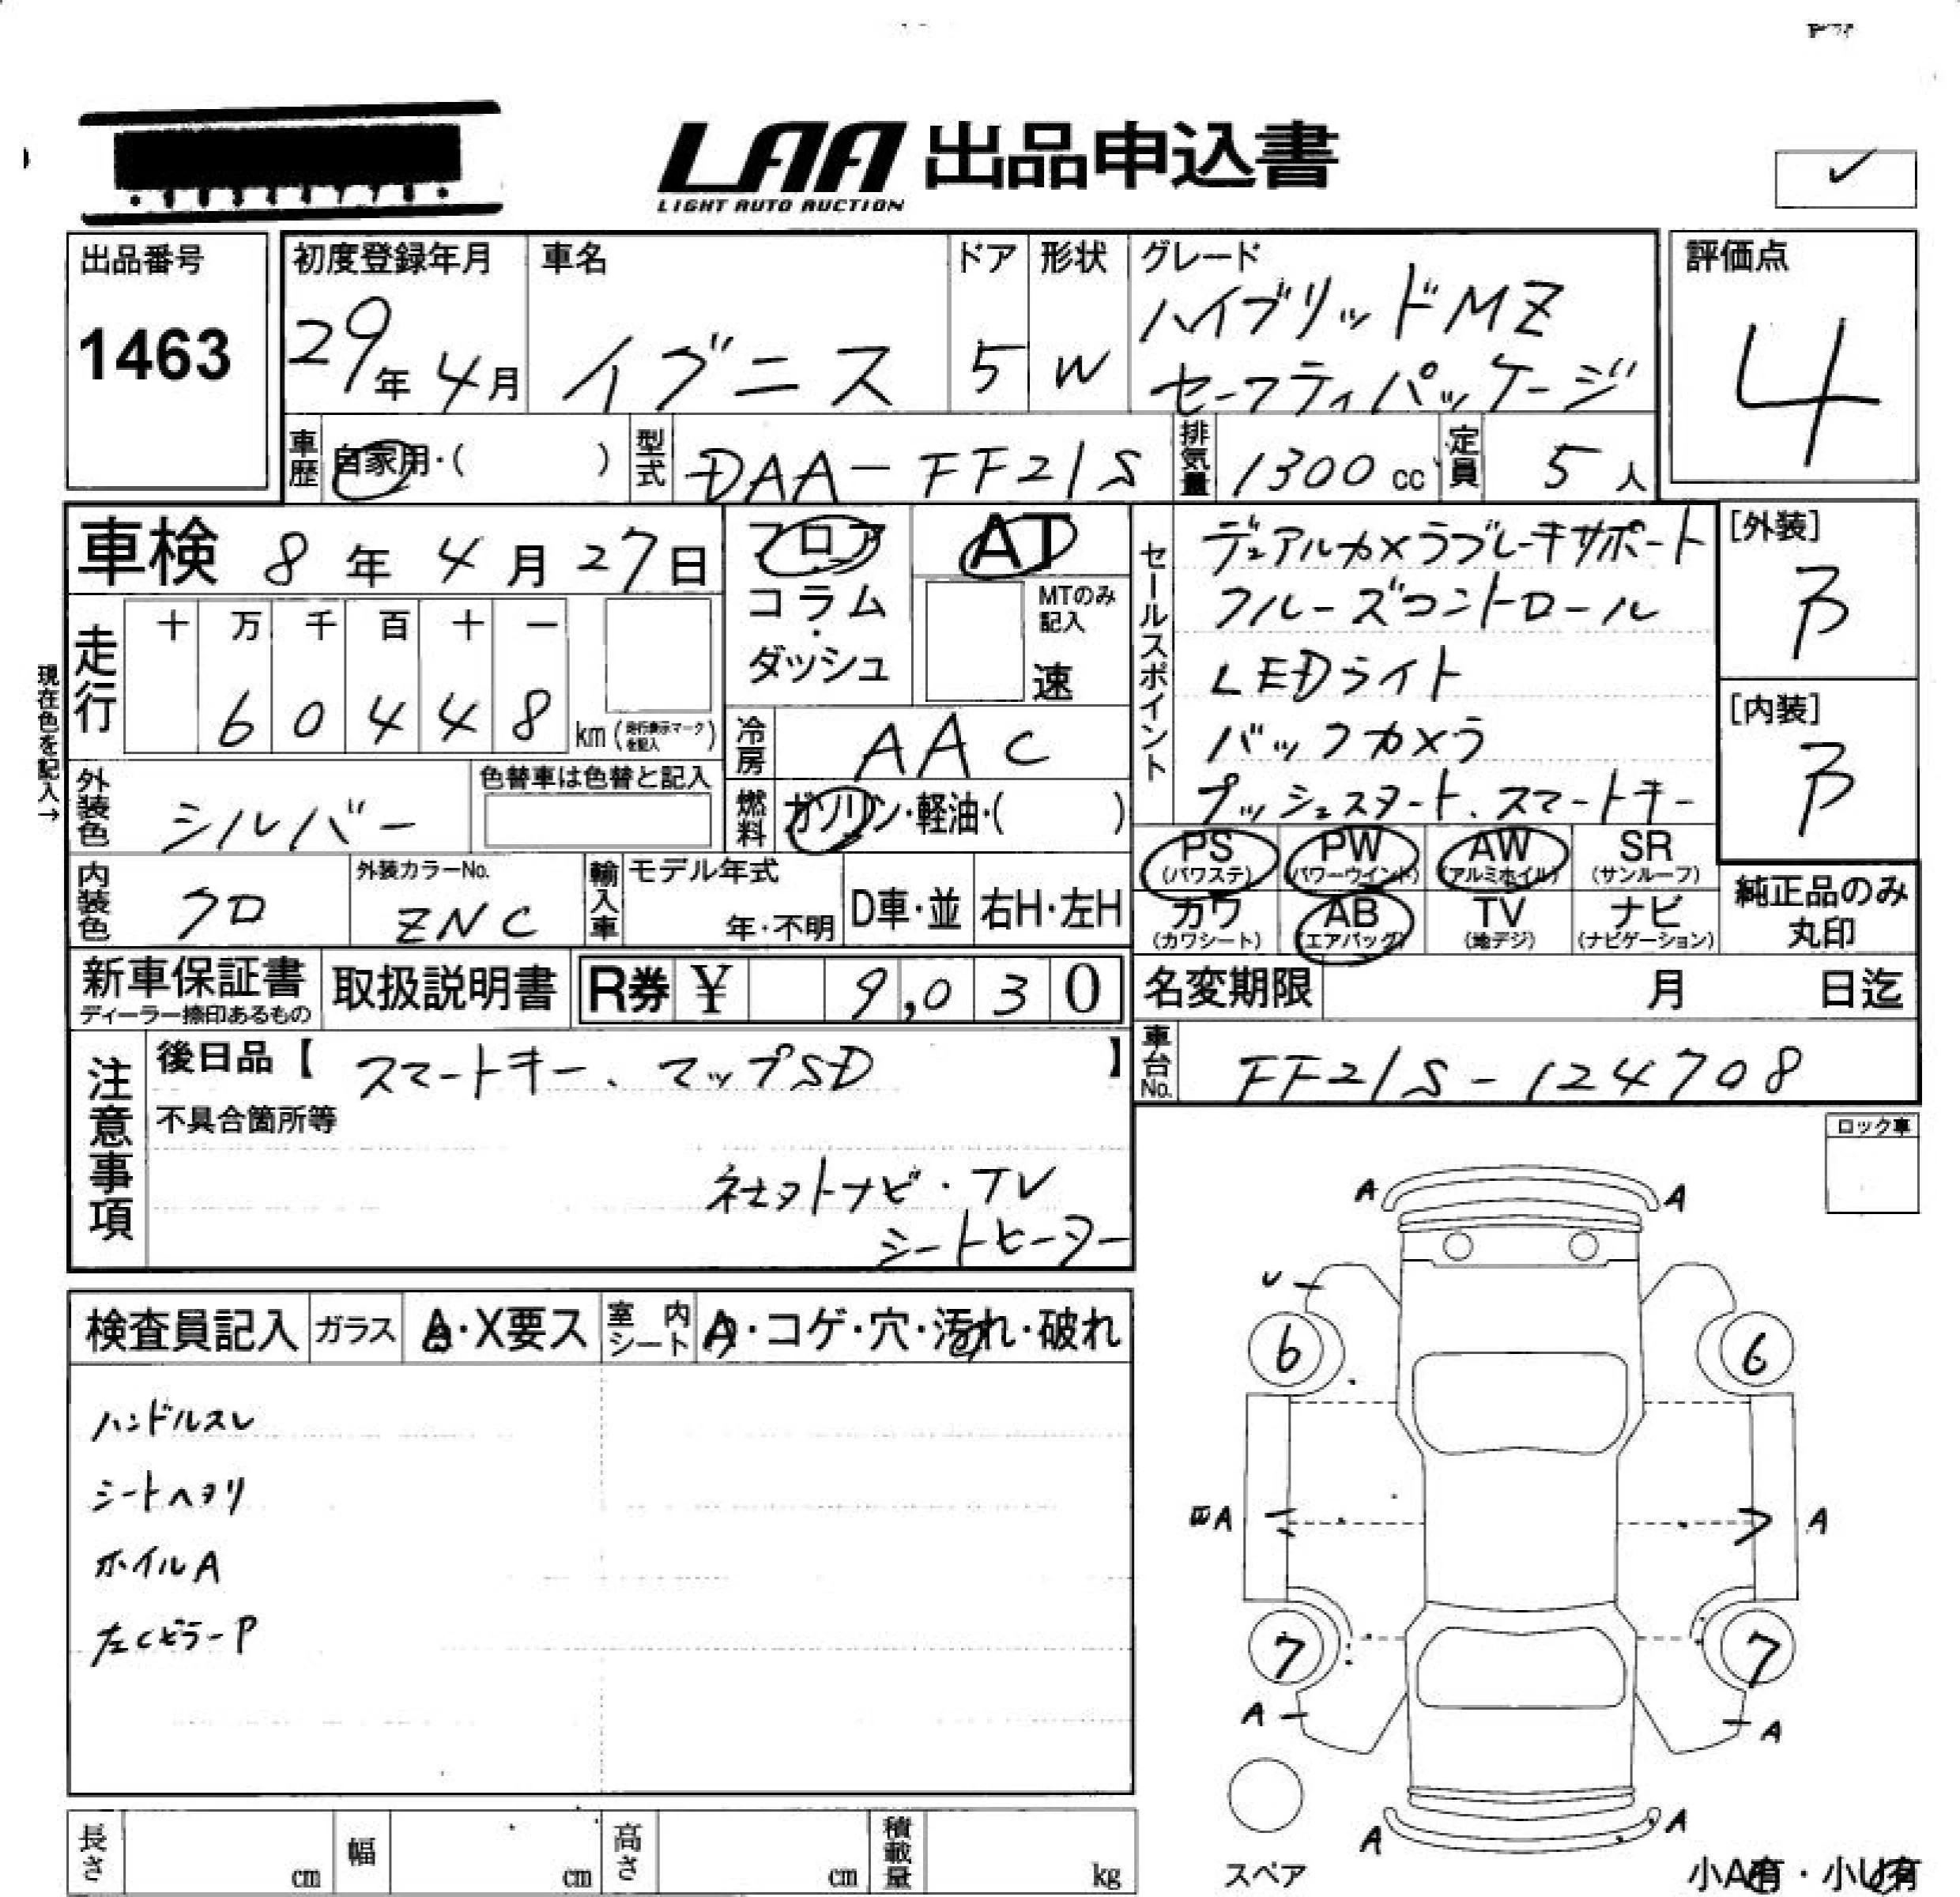 LAA 出品申込書
LIGHT AUTO AUCTION
出品番号
1463
初度登録年月
29年 4月
車名
イグニス
ドア
5
形状
W
グレード
ハイブリッドMZ
セーフティパッケージ
評価点
4
車歴
自家用・( )
型式
DAA-FF21S
排気量
1300 cc
定員
5 人
車検 8年 4月 27日
フロア
コラム
・
ダッシュ
AT
MTのみ
記入
速
セールスポイント
デュアルカメラブレーキサポート
クルーズコントロール
LEDライト
バックカメラ
プッシュスタート、スマートキー
[外装]
B
[内装]
B
現在色を記入→
走行
十 万 千 百 十 一
6 0 4 4 8
km (走行表示マークを記入)
冷房
AAC
外装色
シルバー
色替車は色替と記入
燃料
ガソリン・軽油・( )
PS
(パワステ)
PW
(パワーウインド)
AW
(アルミホイル)
SR
(サンルーフ)
内装色
クロ
外装カラーNo.
ZNC
輸入車
モデル年式
年・不明
D車・並
右H・左H
カワ
(カワシート)
AB
(エアバッグ)
TV
(地デジ)
ナビ
(ナビゲーション)
純正品のみ
丸印
新車保証書
ディーラー捺印あるもの
取扱説明書
R券 ¥ 9,030
名変期限 月 日迄
注意事項
後日品【 スマートキー、マップSD 】
不具合箇所等
社外ナビ・TV
シートヒーター
車台No.
FF21S-124708
ロック車
検査員記入
ガラス
A・X要ス
室内シート
A・コゲ・穴・汚れ・破れ
ハンドルスレ
シートヘタリ
ホイルA
左CピラーP
A A
U
6 6
A A
7 7
A A
A A
スペア
小A有・小U有
長さ cm
幅 cm
高さ cm
積載量 kg